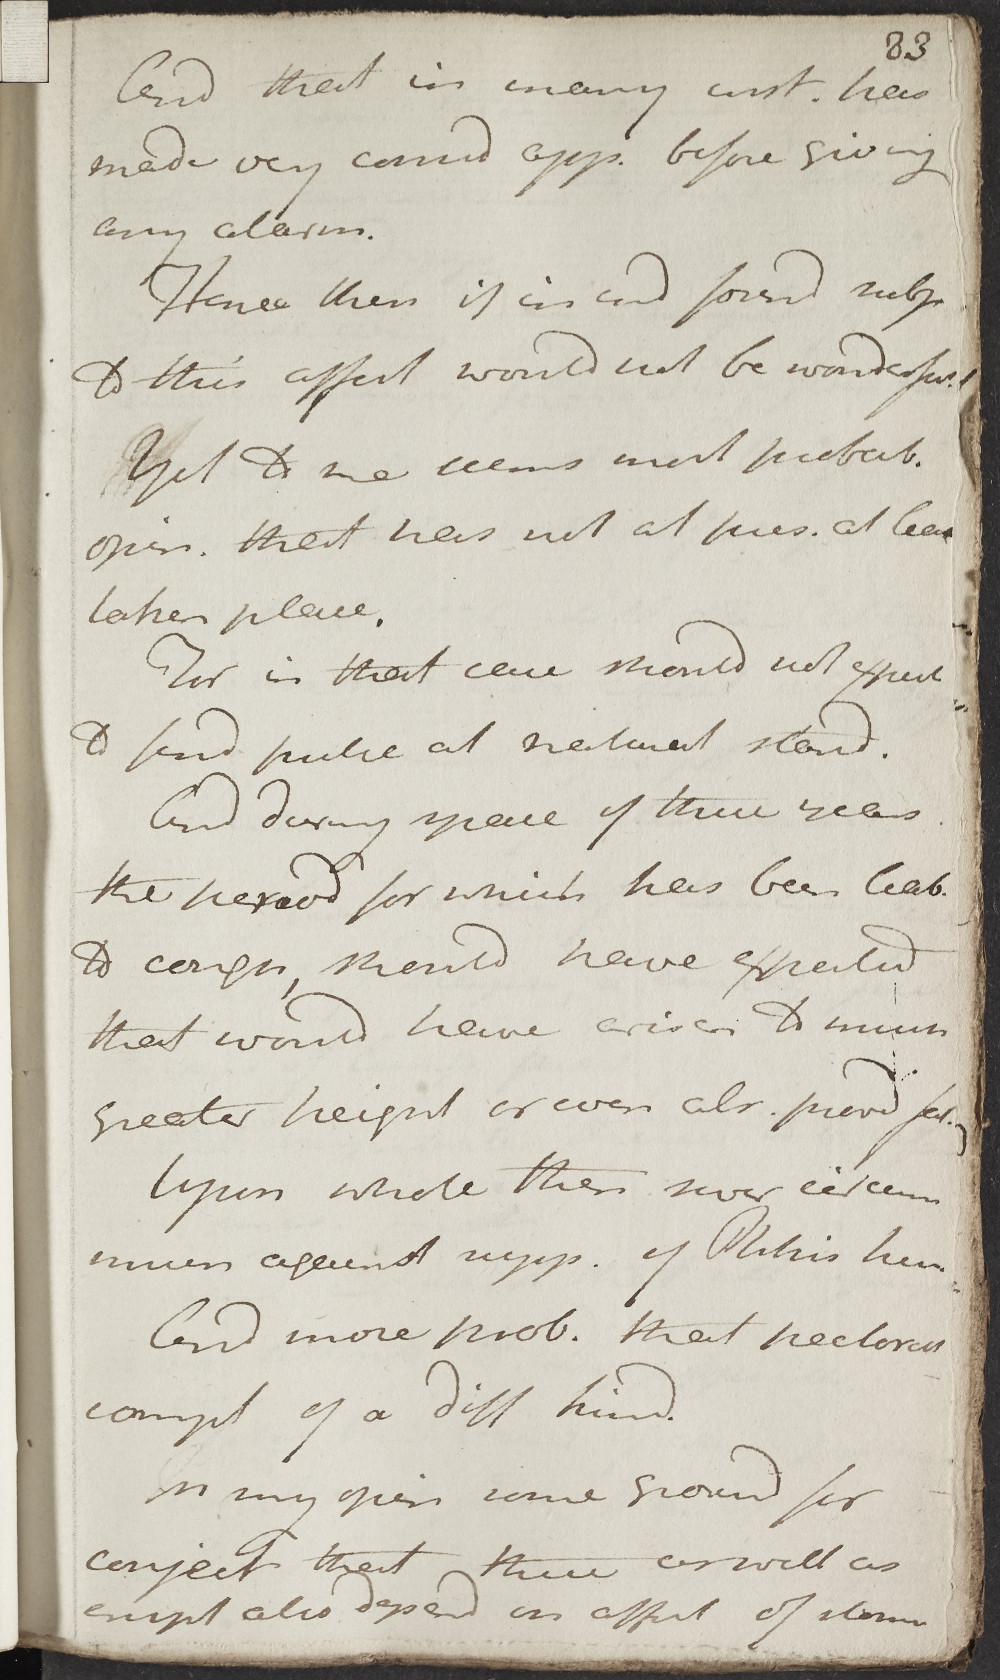 83
And that in many inst. has
made very consid app. before giving
any alarm.
Hence then if in end found subj
to this affect would not be wonderful
Yet to me seems most probab.
opin. that has not at pres. at leas
taken place.
For in that case should not expect
to find pulse at natural stand.
And during space of three years
the period for which has been liab.
to cough, should have expected
that would have arisen to much
greater height or even alr. provd fat.
Upon whole then sever circum
much against supp. of Phthis
And more prob. that pectoral
compl of a diff kind.
In my opin some ground for
conject that these as well as
erupt also depend on affect of stom